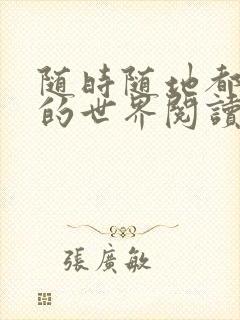 随時随地都
的世界閱讀
張廣敏